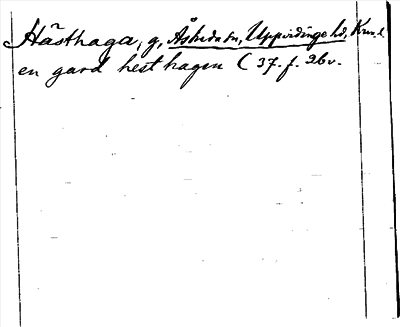 Hästhaga, g, Åsheda sn, Uppvidinge hd, Kron. l.
en gard hest hagen ( 37. f. 26v.